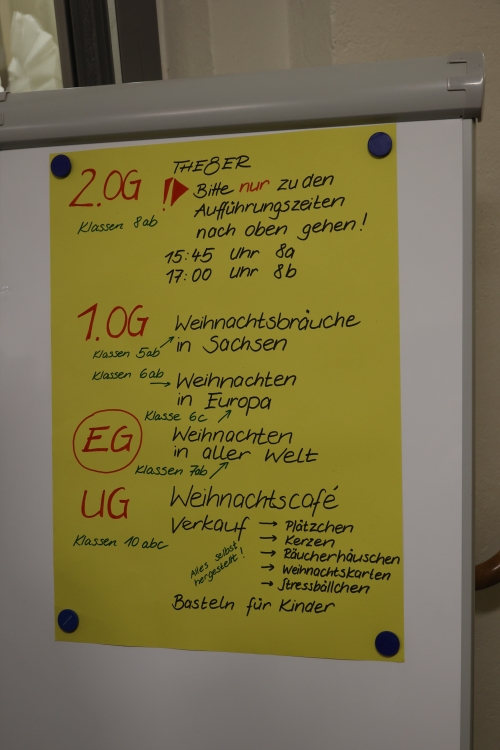 THE8ER
2.OG ! Bitte nur zu den
Klassen 8ab Aufführungszeiten
nach oben gehen!
15:45 Uhr 8a
17:00 Uhr 8b
1.OG Weihnachtsbräuche
Klassen 5ab in Sachsen
Klassen 6ab Weihnachten
in Europa
Klasse 6c
EG Weihnachten
in aller Welt
Klassen 7ab
UG Weihnachtscafé
Verkauf → Plätzchen
Klassen 10 abc → Kerzen
Alles selbst → Räucherhäuschen
hergestellt! → Weihnachtskarten
→ Stressbällchen
Basteln für Kinder